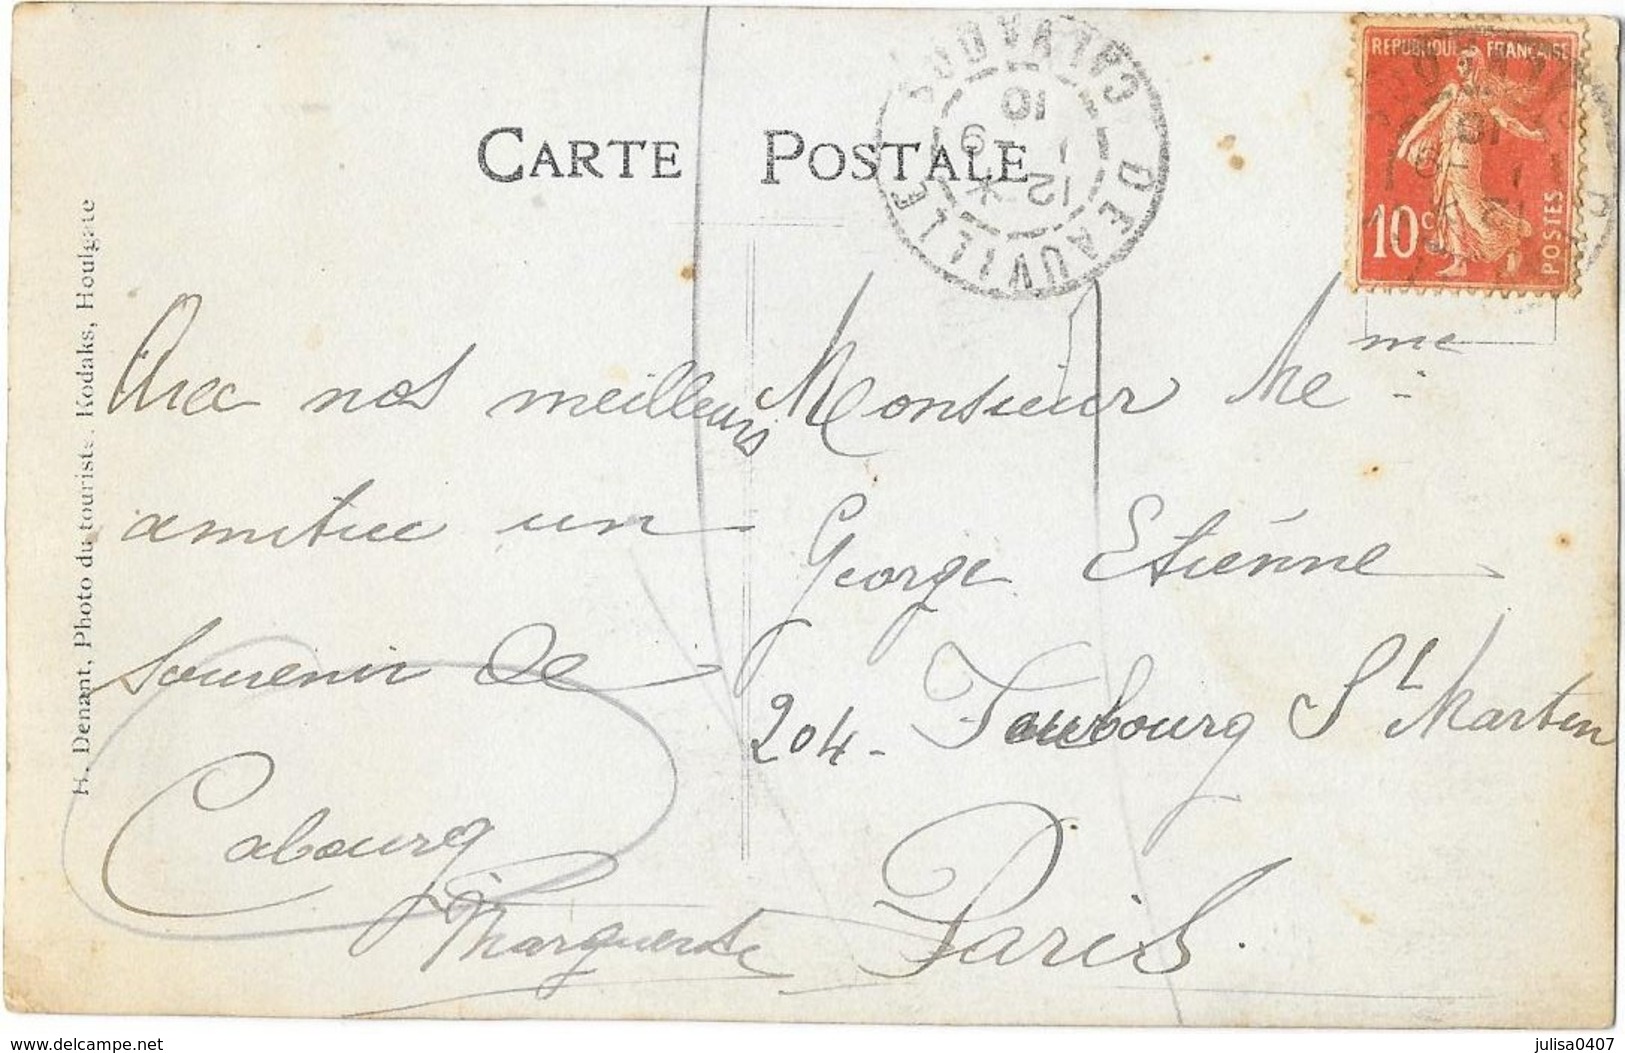 CARTE POSTALE
DEAUVILLE CALVADOS
12 * - 9 10
REPUBLIQUE FRANÇAISE
10c
POSTES
H. Denant, Photo du touriste. Kodaks, Houlgate
Avec nos meilleurs
amitiée un
souvenir de
Cabourg
Marguerite
Monsieur Me me
George Etiénne
204 - Faubourg St Martin
Paris.
delcampe.net
julisa0407